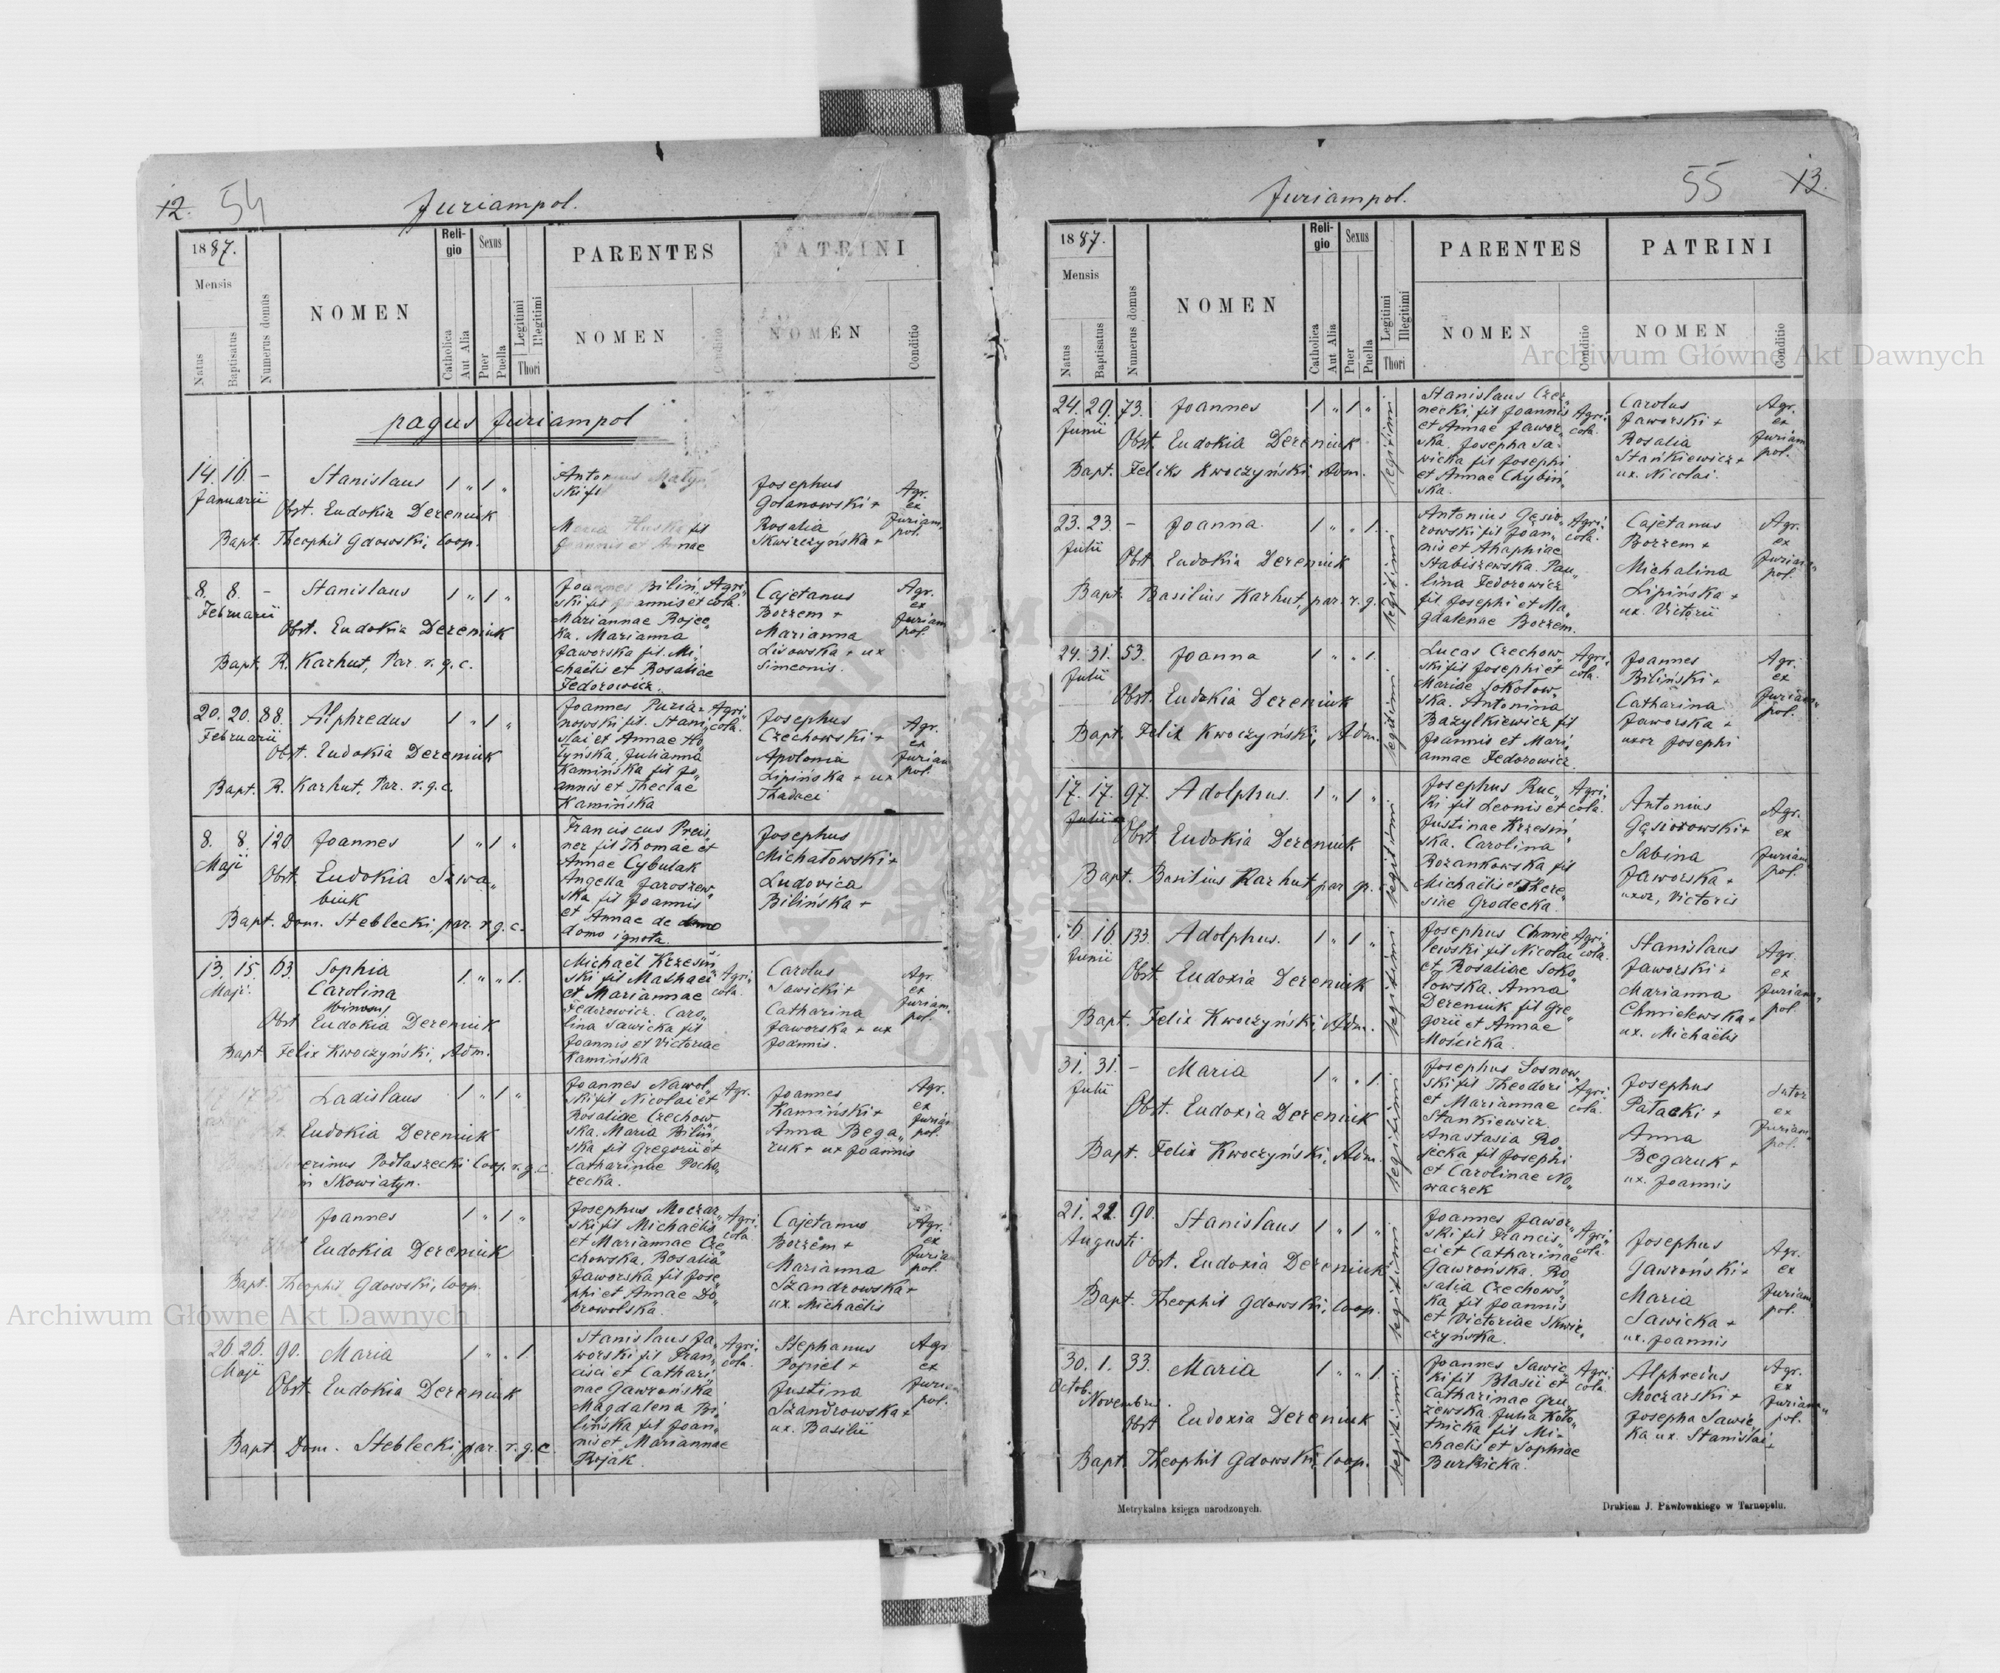 12. 54
Juriampol.
1887.
Mensis
Natus
Baptisatus
Numerus domus
NOMEN
Reli-
gio
Catholica
Aut Alia
Sexus
Puer
Puella
Legitimi
Illegitimi
Thori
PARENTES
NOMEN
Conditio
PATRINI
NOMEN
Conditio
pagus Juriampol
14. 16. - Stanislaus 1 " 1 "
Januarii
Obst. Eudokia Dereniuk
Bapt. Theophil Gdowski, coop.
Antonius Matyń
ski fil
Maria Huska fil
Joannis et Annae
Josephus
Golanowski +
Rosalia
Skwirczyńska +
Agr.
ex
Juriam
pol.
8. 8. - Stanislaus 1 " 1 "
Februarii
Obst. Eudokia Dereniuk
Bapt. R. Karhut, Par. r. g. c.
Joannes Biliń Agri
ski fil Joannis et cola.
Mariannae Rojec
ka. Marianna
Jaworska fil. Mi
chaëlis et Rosaliae
Fedorowicz.
Cajetanus
Borzem +
Marianna
Lisowska + ux
Simeonis.
Agr.
ex
Juriam
pol.
20. 20. 88. Alphredus 1 " 1 "
Februarii
Obst. Eudokia Dereniuk
Bapt. R. Karhut, Par. r. g. c.
Joannes Puzia- Agri
nowski fil. Stani cola.
slai et Annae Ho
łyńska, Julianna
Kamińska fil Jo
annis et Theclae
Kamińska
Josephus
Czechowski +
Apolonia
Lipińska + ux
Thadaei
Agr.
ex
Juriam
pol.
8. 8. 120 Joannes 1 " 1 "
Maji
Obst. Eudokia Szwa
biuk
Bapt. Dom. Steblecki, par. r. g. c.
Franciscus Preis
ner fil Thomae et
Annae Cybulak
Angella Jaroszew
ska fil Joannis
et Annae de domo
domo ignota.
Josephus
Michałowski +
Ludovica
Bilińska +
13. 15. 63. Sophia 1. " " 1.
Maji. Carolina
binom
Obst. Eudokia Dereniuk
Bapt. Felix Kwoczyński, Adm.
Michaël Krzesiń
ski fil Mathaei Agri
et Mariannae cola.
Fedorowicz. Caro
lina Sawicka fil
Joannis et Victoriae
Kamińska
Carolus
Sawicki +
Catharina
Jaworska + ux
Joannis.
Agr.
ex
Juriam.
pol.
Ladislaus 1 " 1 "
Eudokia Dereniuk
erinus Podłaszecki coop. r. g. c.
in Skowiatyn.
Joannes Nawol Agr.
ski fil Nicolai et
Rosaliae Czechow
ska. Maria Biliń
ska fil Gregorii et
Catharinae Pocho
recka.
Joannes
Kamiński +
Anna Bega
ruk + ux Joannis
Agr.
ex
Juriam
pol.
Joannes 1 " 1 "
Eudokia Dereniuk
Bapt. Theophil Gdowski, coop.
Josephus Moczar Agri.
ski fil Michaëlis cola
et Mariannae Cze
chowska. Rosalia
Jaworska fil Jose
phi et Annae Do
browolska.
Cajetanus
Borzem +
Marianna
Szandrowska +
ux. Michaëlis
Agr.
ex
Juriam
pol.
26. 26. 90. Maria 1 " . 1.
Maji
Obst. Eudokia Dereniuk
Bapt. Dom. Steblecki, par. r. g. c.
Stanislaus Ja Agri
worski fil Fran cola.
cisci et Cathari
nae Gawrońska
Magdalena Bi
lińska fil Joan
nis et Mariannae
Rojak.
Stephanus
Popiel +
Justina
Szandrowska +
ux. Basilii
Agr
ex
Juriam
pol.
55 13.
Juriampol.
1887.
Mensis
Natus
Baptisatus
Numerus domus
NOMEN
Reli-
gio
Catholica
Aut Alia
Sexus
Puer
Puella
Legitimi
Illegitimi
Thori
PARENTES
NOMEN
Conditio
PATRINI
NOMEN
Conditio
24. 29. 73. Joannes 1 " 1 "
Junii
Obst. Eudokia Dereniuk
Bapt. Feliks Kwoczyński, Adm.
legitimi
Stanislaus Czer
necki, fil Joannis Agri
et Annae Jawor cola.
ska. Josepha Sa-
wicka fil Josephi
et Annae Chybiń
ska.
Carolus
Jaworski +
Rosalia
Stańkiewicz +
ux. Nicolai.
Agr.
ex
Juriam
pol.
23. 23. - Joanna. 1 " " 1.
Julii
Obst. Eudokia Dereniuk
Bapt. Basilius Karhut, par. r. g.
legitimi
Antonius Gąsio Agri
rowski fil Joan cola.
nis et Ahaphiae
Stabiszewska. Pau
lina Fedorowicz
fil. Josephi et Ma
gdalenae Borzem.
Cajetanus
Borzem +
Michalina
Lipińska +
ux. Victorii
Agr.
ex
Juriam
pol.
24. 31. 53. Joanna 1 " " 1.
Julii
Obst. Eudokia Dereniuk
Bapt. Felix Kwoczyński, Adm.
legitimi
Lucas Czechow Agri
ski fil Josephi et cola.
Mariae Sokołow
ska. Antonina
Bazylkiewicz fil
Joannis et Mari
annae Fedorowicz.
Joannes
Biliński +
Catharina
Jaworska +
uxor Josephi
Agr.
ex
Juriam
pol.
17. 17. 97. Adolphus. 1 " 1 "
Julii
Obst. Eudokia Dereniuk
Bapt. Basilius Karhut par g.
legitimi
Josephus Ruc Agri
ki fil Leonis et cola.
Justinae Krzesiń
ska. Carolina
Rozankowska fil
Michaëlis et There
siae Grodecka.
Antonius
Gąsiorowski +
Sabina
Jaworska +
uxor, Victoris
Agr.
ex
Juriam
pol.
16 16. 133. Adolphus. 1 " 1 "
Junii
Obst. Eudoxia Dereniuk
Bapt. Felix Kwoczyński, Adm.
legitimi
Josephus Chmie Agri
lewski fil Nicolae cola.
et Rosaliae Soko
łowska. Anna
Dereniuk fil Gre
gorii et Annae
Mościcka.
Stanislaus
Jaworski +
Marianna
Chmielewska +
ux. Michaëlis
Agr.
ex
Juriam
pol
31. 31. - Maria 1 " " 1.
Julii
Obst. Eudoxia Dereniuk
Bapt. Felix Kwoczyński, Adm.
legitimi
Josephus Sosnow
ski fil Theodori Agri
et Mariannae cola.
Stankiewicz.
Anastasia Ro
jecka fil Josephi
et Carolinae No
waczek
Josephus
Pałacki +
Anna
Begaruk +
ux. Joannis
ex
Juriam
pol.
21. 22. 90. Stanislaus 1 " 1 "
Augusti
Obst. Eudoxia Dereniuk
Bapt. Theophil Gdowski, coop.
legitimi
Joannes Jawor Agri
ski fil Francis cola.
ci et Catharinae
Gawrońska. Ro
salia Czechows
ka fil Joannis
et Victoriae Skwir
czyńska.
Josephus
Gawroński +
Maria
Sawicka +
ux. Joannis
Agr.
ex
Juriam
pol.
30. 1. 33. Maria 1 " " 1
Octob. Novembris.
Obst Eudoxia Dereniuk
Bapt. Theophil Gdowski, coop.
legitimi
Joannes Sawic Agri
ki fil Blasii et cola.
Catharinae Gru
zewska. Julia Koło
tnicka fil Mi-
chaëlis et Sophiae
Burkicka.
Alphreius
Moczarski +
Josepha Sawic
ka ux. Stanislai +
Agr.
ex
Juriam
pol.
Metrykalna księga narodzonych.
Drukiem J. Pawłowskiego w Tarnopolu.
Archiwum Główne Akt Dawnych
Archiwum Główne Akt Dawnych